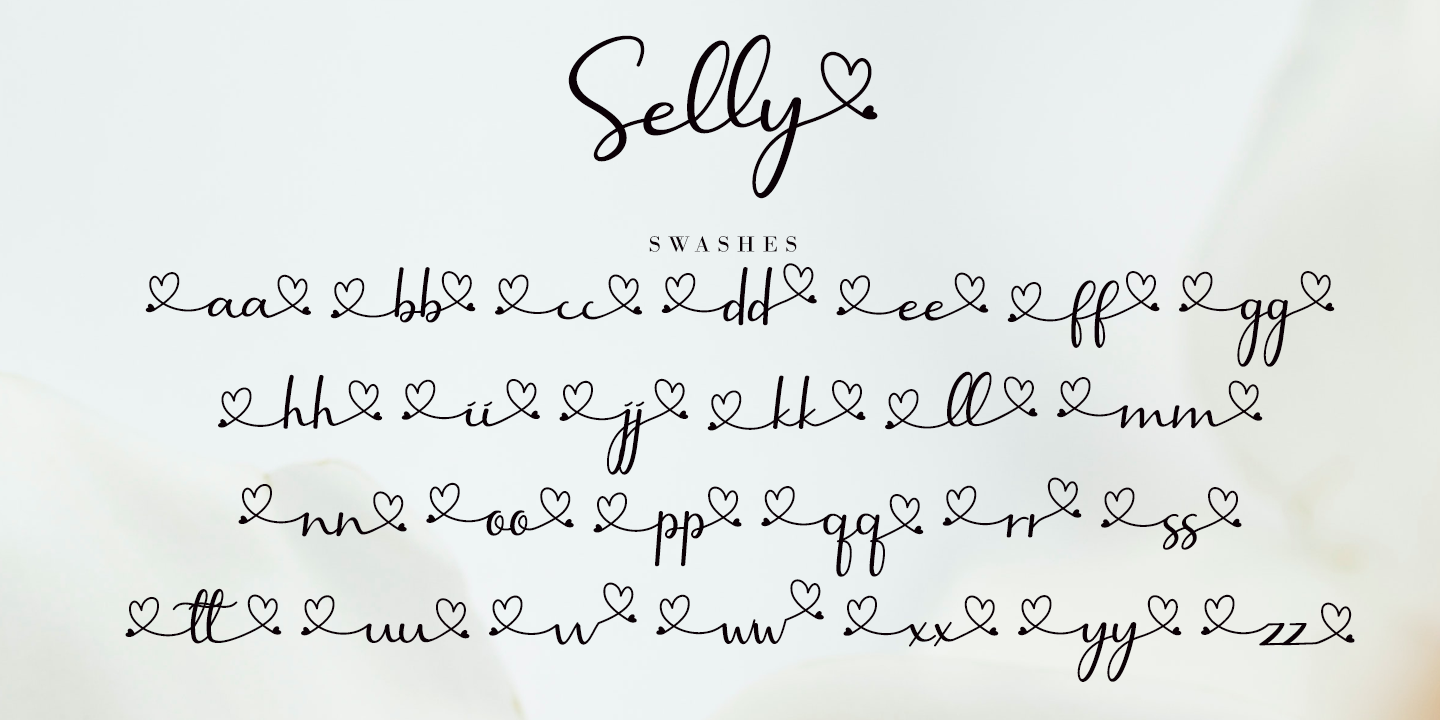 Selly
SWASHES
aa bb cc dd ee ff gg
hh ii jj kk ll mm
nn oo pp qq rr ss
tt uu vv ww xx yy zz